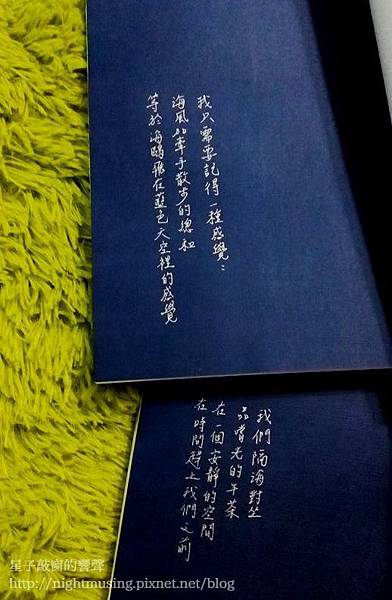 我只需要記得一種感覺：
海風加牽手散步的總和
等於海鷗飛在藍色天空裡的感覺
我們隔海對坐
品嚐光的午茶
在一個安靜的空間
在時間趕上我們之前
星子敲窗的響聲
http://nightmusing.pixnet.net/blog